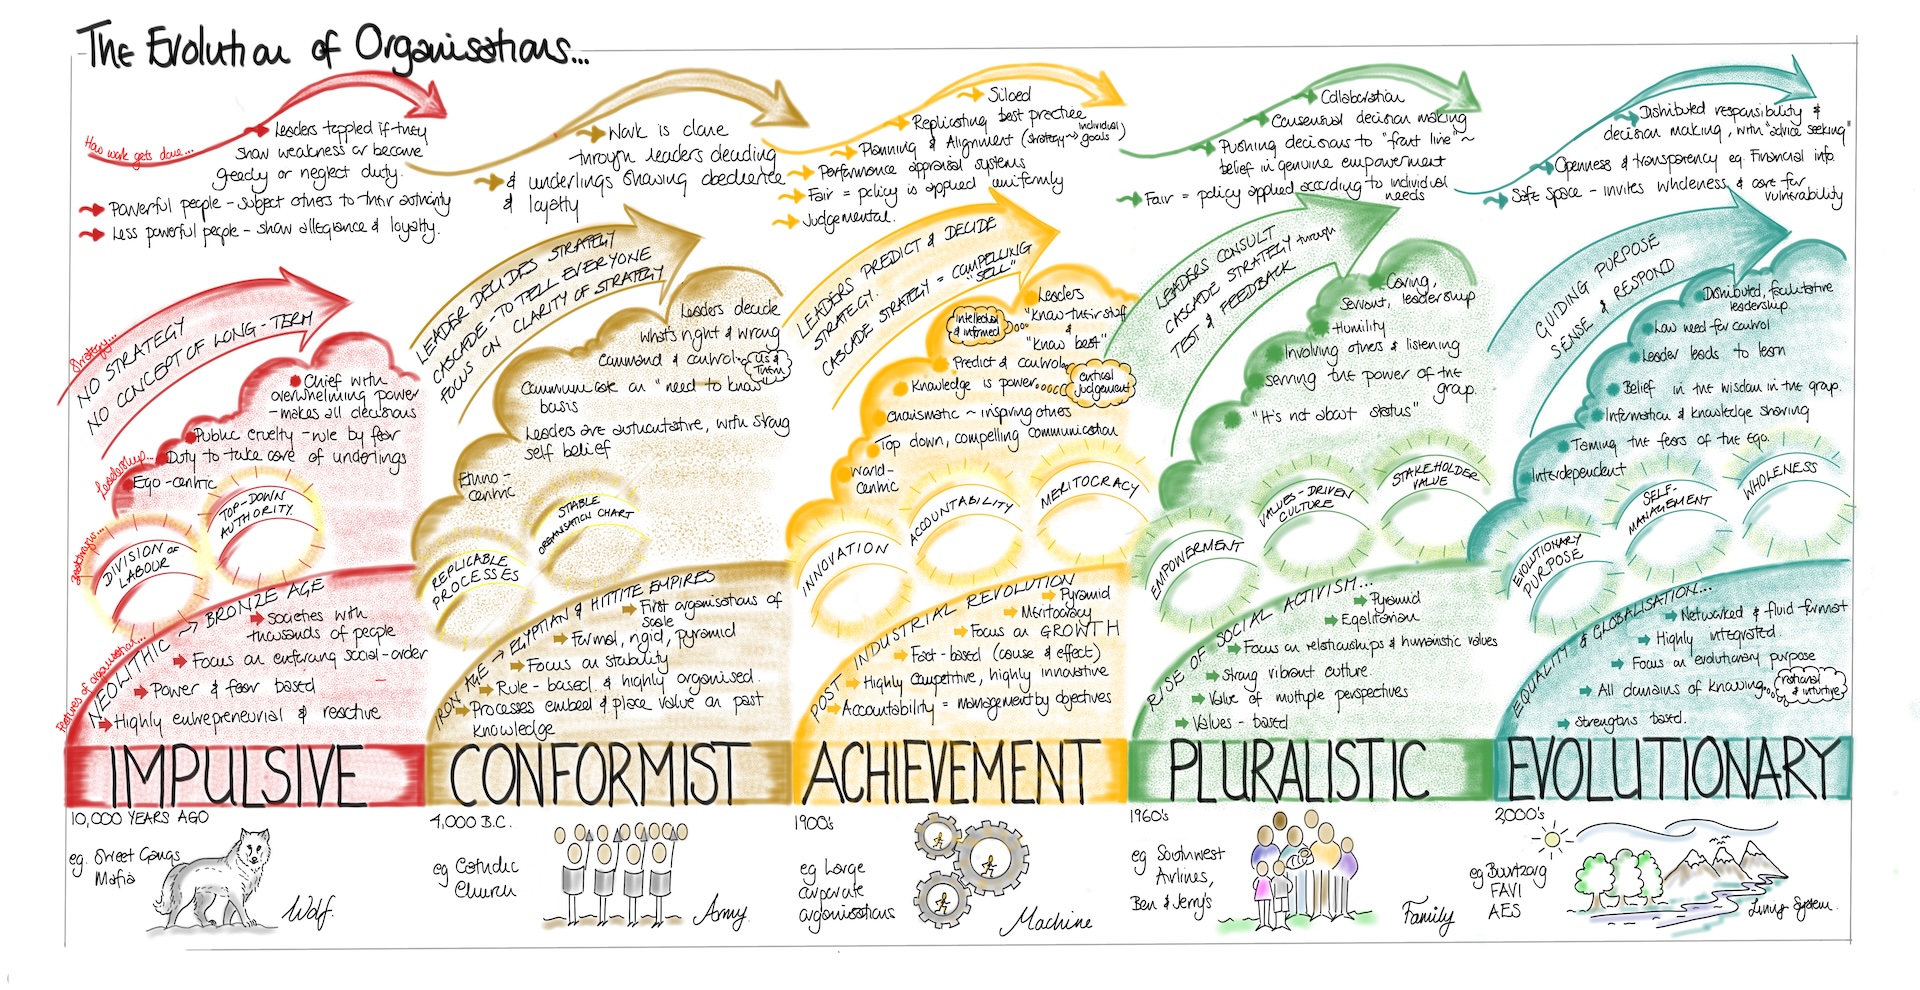 The Evolution of Organisations...
How work gets done...
Leaders toppled if they
show weakness or become
greedy or neglect duty.
Powerful people - subject others to their authority
Less powerful people - show allegiance & loyalty.
Strategy...
NO STRATEGY
NO CONCEPT OF LONG-TERM
Leadership...
Chief with
overwhelming power
- makes all decisions
Public cruelty - rule by fear
Duty to take care of underlings
Ego-centric
TOP-DOWN
AUTHORITY.
DIVISION OF
LABOUR
Features of organisation...
NEOLITHIC → BRONZE AGE
Societies with
thousands of people
Focus on enforcing social-order
Power & fear based
Highly entrepreneurial & reactive
IMPULSIVE
10,000 YEARS AGO
eg. Street Gangs
Mafia
Wolf.
Work is done
through leaders deciding
& underlings showing obedience
& loyalty
LEADER DECIDES STRATEGY
CASCADE - TO TELL EVERYONE
FOCUS ON CLARITY OF STRATEGY
Leaders decide
what's right & wrong
Command & control
us &
them
Communicate on "need to know"
basis
Leaders are authoritative, with strong
self belief
Ethno-
centric
STABLE
ORGANISATION CHART
REPLICABLE
PROCESSES
IRON AGE → EGYPTIAN & HITTITE EMPIRES
First organisations of
scale
Formal, rigid, pyramid
Focus on stability
Rule-based & highly organised.
Processes embed & place value on past
knowledge
CONFORMIST
4,000 B.C.
eg Catholic
Church
Army.
Siloed
Replicating best practice
Planning & Alignment (strategy → individual goals)
Performance appraisal systems
Fair = policy is applied uniformly
Judgemental.
LEADERS PREDICT & DECIDE
STRATEGY.
CASCADE STRATEGY = COMPELLING
"SELL"
Leaders
"Know their stuff
&
"Know best"
intellectual
& informed
Predict & control
Knowledge is power
critical
judgement
Charismatic ~ inspiring others
Top down, compelling communication
World-
centric
INNOVATION
ACCOUNTABILITY
MERITOCRACY
POST INDUSTRIAL REVOLUTION
Pyramid
Meritocracy
Focus on GROWTH
Fact-based (cause & effect)
Highly competitive, highly innovative
Accountability = management by objectives
ACHIEVEMENT
1900s
eg Large
corporate
organisations
Machine
Collaboration
Consensual decision making
Pushing decisions to "front line" ~
belief in genuine empowerment
Fair = policy applied according to individual
needs
LEADERS CONSULT
CASCADE STRATEGY through
TEST & FEEDBACK
Caring,
Servant, leadership
Humility
Involving others & listening
serving the power of the
group.
"It's not about status"
EMPOWERMENT
VALUES-DRIVEN
CULTURE
STAKEHOLDER
VALUE
RISE OF SOCIAL ACTIVISM...
Pyramid
Egalitarian
Focus on relationships & humanistic values
Strong vibrant culture.
Value of multiple perspectives
Values-based
PLURALISTIC
1960's
eg Southwest
Airlines,
Ben & Jerry's
Family
Distributed responsibility &
decision making, with "advice seeking"
Openness & transparency eg. Financial info.
Safe space - invites wholeness & care for
vulnerability
GUIDING PURPOSE
SENSE & RESPOND
Distributed, facilitative
leadership.
Low need for control
Leader leads to learn
Belief in the wisdom in the group.
Information & knowledge sharing
Taming the fears of the Ego.
Interdependent
EVOLUTIONARY
PURPOSE
SELF-
MANAGEMENT
WHOLENESS
EQUALITY & GLOBALISATION...
Networked & fluid format
Highly integrated.
Focus on evolutionary purpose
All domains of knowing
rational
& intuitive
Strengths based.
EVOLUTIONARY
2000's
eg Buurtzorg
FAVI
AES
Living System.